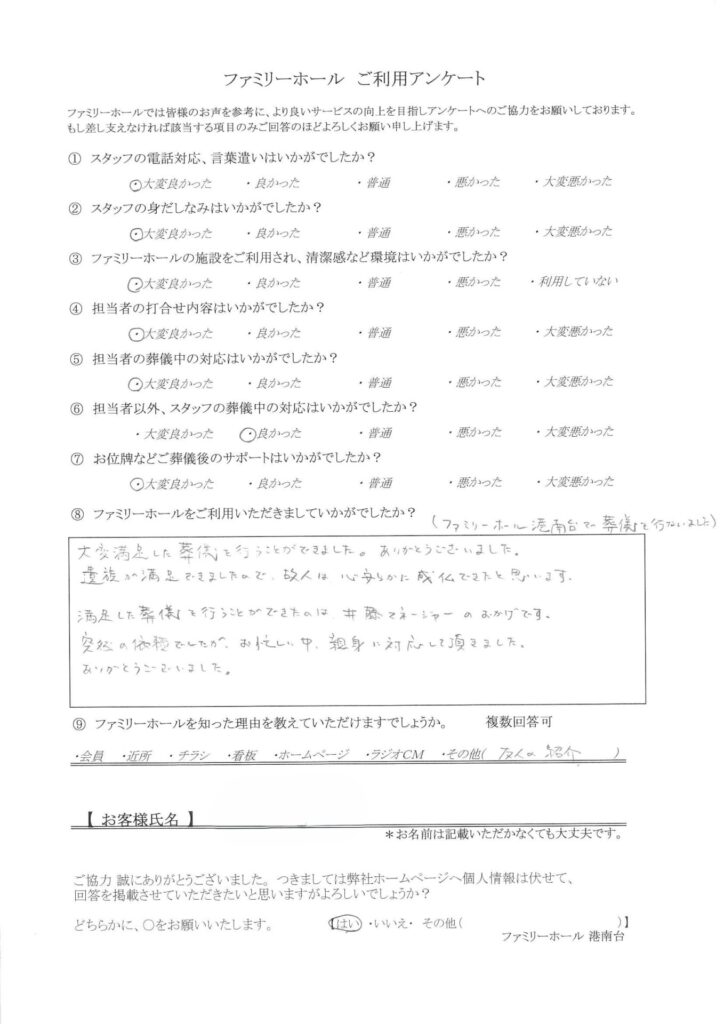 ファミリーホール　ご利用アンケート
ファミリーホールでは皆様のお声を参考に、より良いサービスの向上を目指しアンケートへのご協力をお願いしております。
もし差し支えなければ該当する項目のみご回答のほどよろしくお願い申し上げます。
① スタッフの電話対応、言葉遣いはいかがでしたか？
・大変良かった ・良かった ・普通 ・悪かった ・大変悪かった
② スタッフの身だしなみはいかがでしたか？
・大変良かった ・良かった ・普通 ・悪かった ・大変悪かった
③ ファミリーホールの施設をご利用され、清潔感など環境はいかがでしたか？
・大変良かった ・良かった ・普通 ・悪かった ・利用していない
④ 担当者の打合せ内容はいかがでしたか？
・大変良かった ・良かった ・普通 ・悪かった ・大変悪かった
⑤ 担当者の葬儀中の対応はいかがでしたか？
・大変良かった ・良かった ・普通 ・悪かった ・大変悪かった
⑥ 担当者以外、スタッフの葬儀中の対応はいかがでしたか？
・大変良かった ・良かった ・普通 ・悪かった ・大変悪かった
⑦ お位牌などご葬儀後のサポートはいかがでしたか？
・大変良かった ・良かった ・普通 ・悪かった ・大変悪かった
⑧ ファミリーホールをご利用いただきましていかがでしたか？
(ファミリーホール港南台で葬儀を行ないました)
大変満足した葬儀を行うことができました。ありがとうございました。
遺族が満足できましたので、故人は心安らかに成仏できたと思います。
満足した葬儀を行うことができたのは、井藤マネージャーのおかげです。
突然の依頼でしたが、お忙しい中、親身に対応して頂きました。
ありがとうございました。
⑨ ファミリーホールを知った理由を教えていただけますでしょうか。　複数回答可
・会員 ・近所 ・チラシ ・看板 ・ホームページ ・ラジオCM ・その他( 友人の紹介 )
【 お客様氏名 】
＊お名前は記載いただかなくても大丈夫です。
ご協力 誠にありがとうございました。つきましては弊社ホームページへ個人情報は伏せて、
回答を掲載させていただきたいと思いますがよろしいでしょうか？
どちらかに、○をお願いいたします。　【はい ・いいえ・ その他( )】
ファミリーホール 港南台